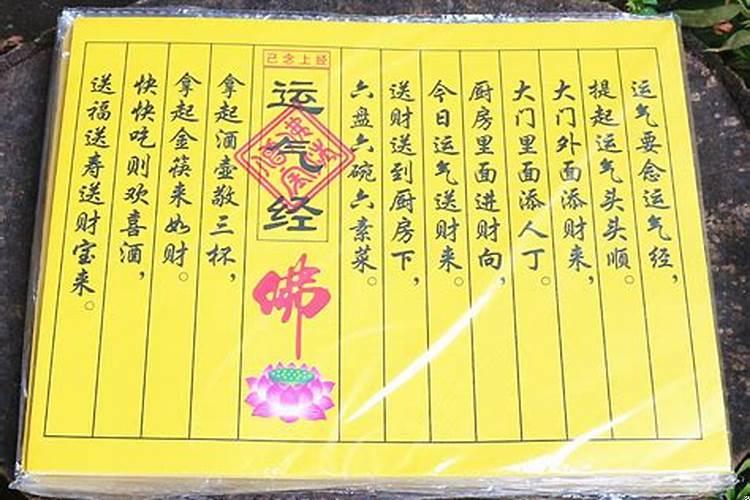 运气要念运气经，
提起运气头头顺。
大门外面添财来，
大门里面添人丁。
厨房里面进财向，
今日运气送财来。
送财送到厨房下，
六盘六碗六素菜。
已念上经
运气经
佛
拿起酒壶敬三杯，
拿起金筷来如财。
快快吃则欢喜酒，
送福送寿送财宝来。